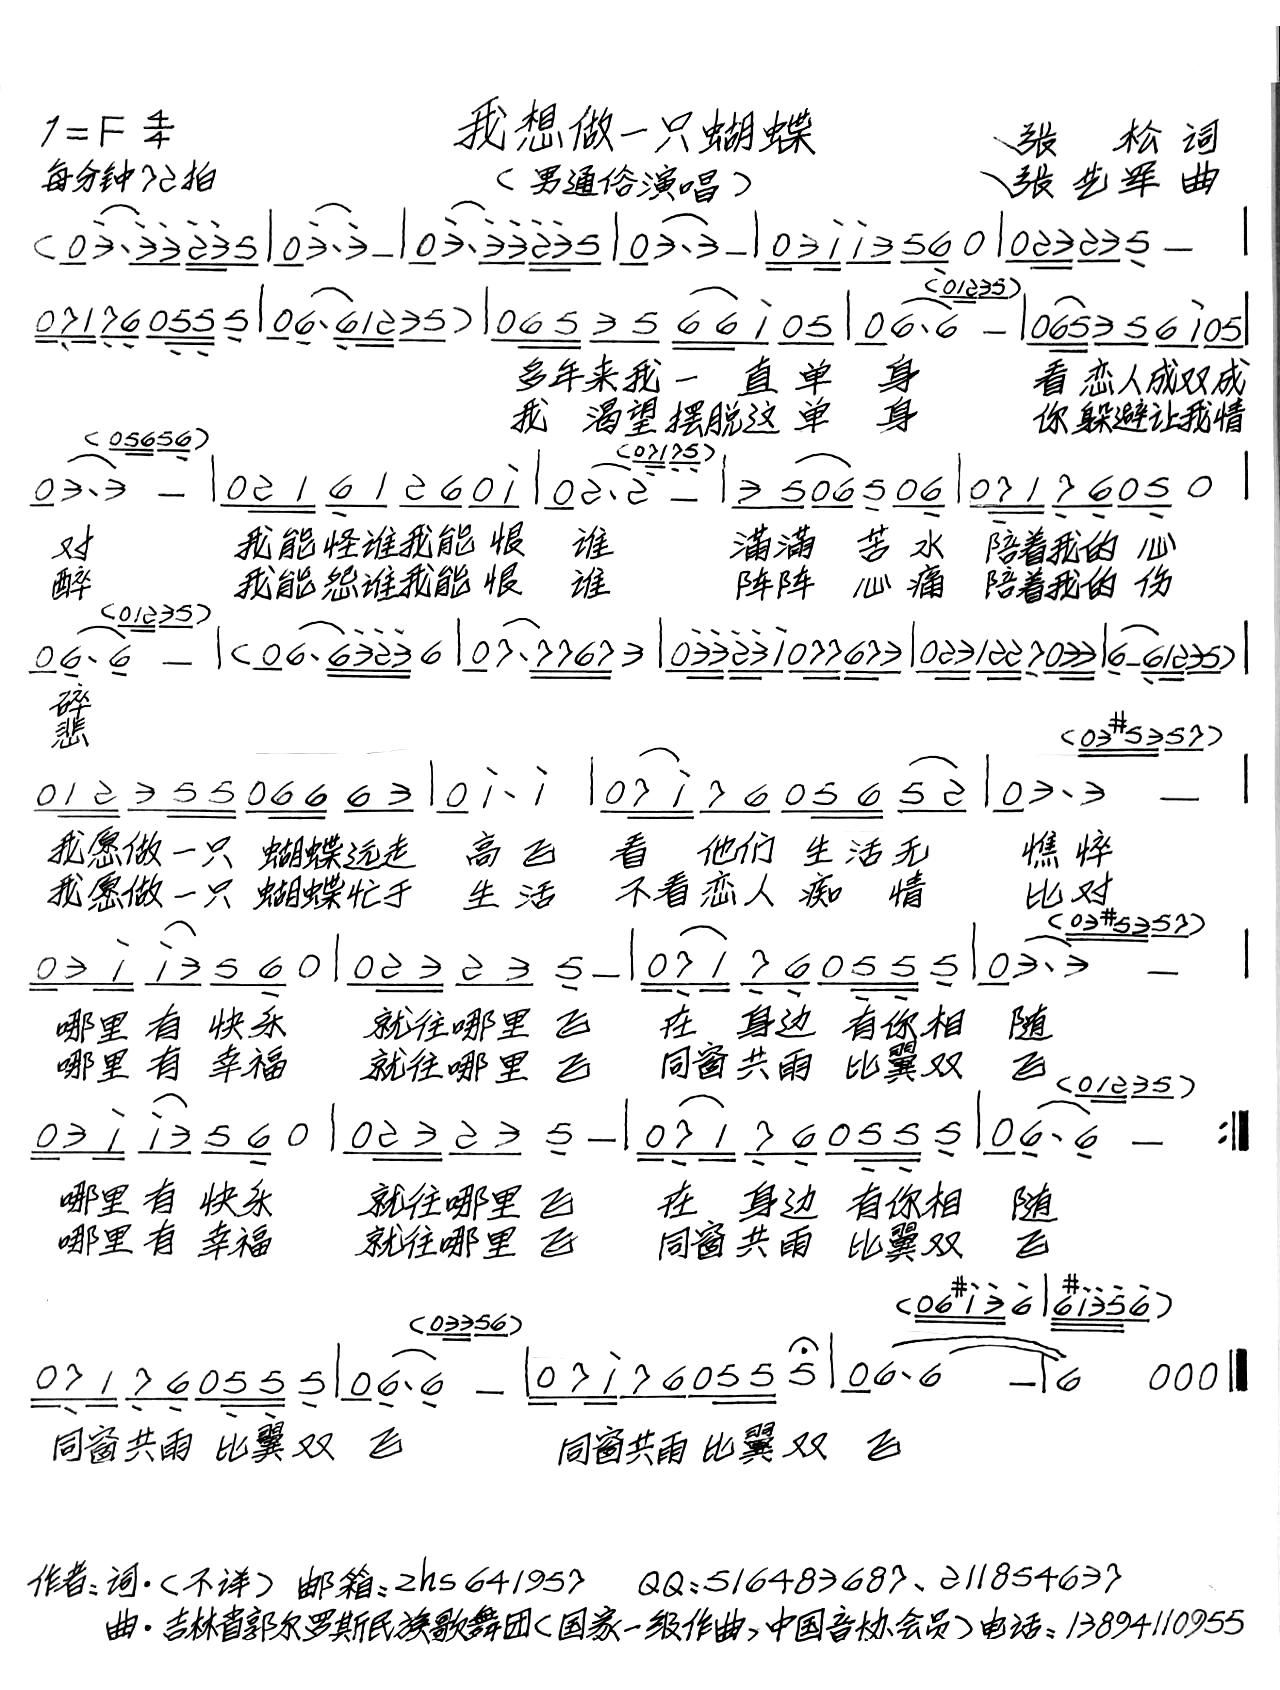 1=F 4/4
我想做一只蝴蝶
张 松 词
每分钟72拍
(男通俗演唱)
曲
(03·33235|03·3-|03·33235|03·3-|03113560|023235-|
0717605555|06·61235)|0653566105|06·6-(01235)|065356105|
多年来我一直单身 看恋人成双成
我渴望摆脱这单身 你躲避让我情
03·3-(05656)|021612601|02·2-(07175)|3506506|07176050|
对 我能怪谁我能恨谁 满满苦水 陪着我的心
醉 我能怨谁我能恨谁 阵阵心痛 陪着我的伤
06·6-(01235)|(06·63236|07·77673|033231077673|0231227033|6-61235)|
碎
悲
(03#5357)
01235506663|01·1|0717605652|03·3-|
我愿做一只蝴蝶远走高飞 看他们生活无憔悴
我愿做一只蝴蝶忙于生活 不看恋人痴情比对
(03#5357)
03113560|023235-|0717605555|03·3-|
哪里有快乐 就往哪里飞 在身边有你相随
哪里有幸福 就往哪里飞 同窗共雨比翼双飞
(01235)
03113560|023235-|0717605555|06·6-:||
哪里有快乐 就往哪里飞 在身边有你相随
哪里有幸福 就往哪里飞 同窗共雨比翼双飞
(03356) (06#136|6#1356)
0717605555|06·6-|0717605555|06·6-|6000||
同窗共雨比翼双飞 同窗共雨比翼双飞
作者:词·(不详) 邮箱:zhs641957 QQ:516483687、211854637
曲·吉林省郭尔罗斯民族歌舞团(国家一级作曲,中国音协会员)电话:13894110955